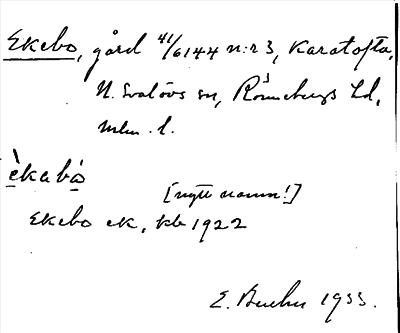 Ekebo, gård 41/6144 n:r 3, Karatofta,
N. Svalövs sn, Rönnebergs hd,
mlm. l.
èkabó
[nytt namn!]
Ekebo ek, kb 1922
E. 1933.